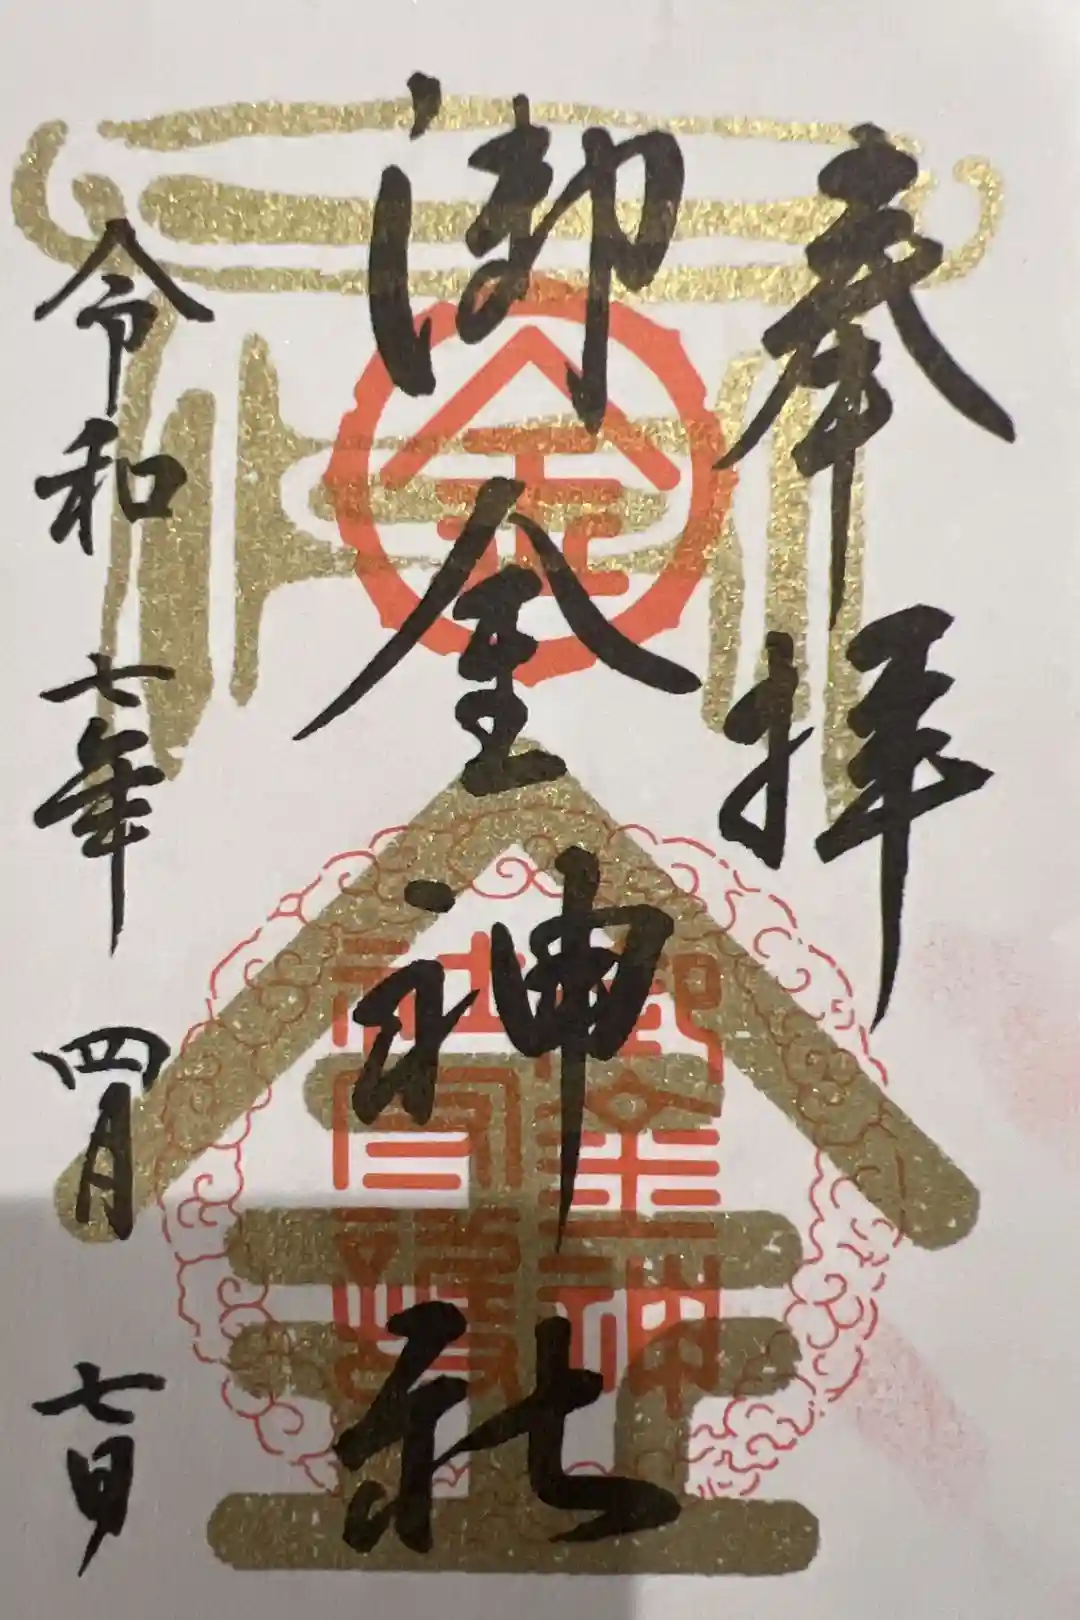 奉拝
御金神社
令和七年四月七日
金
御金神
社